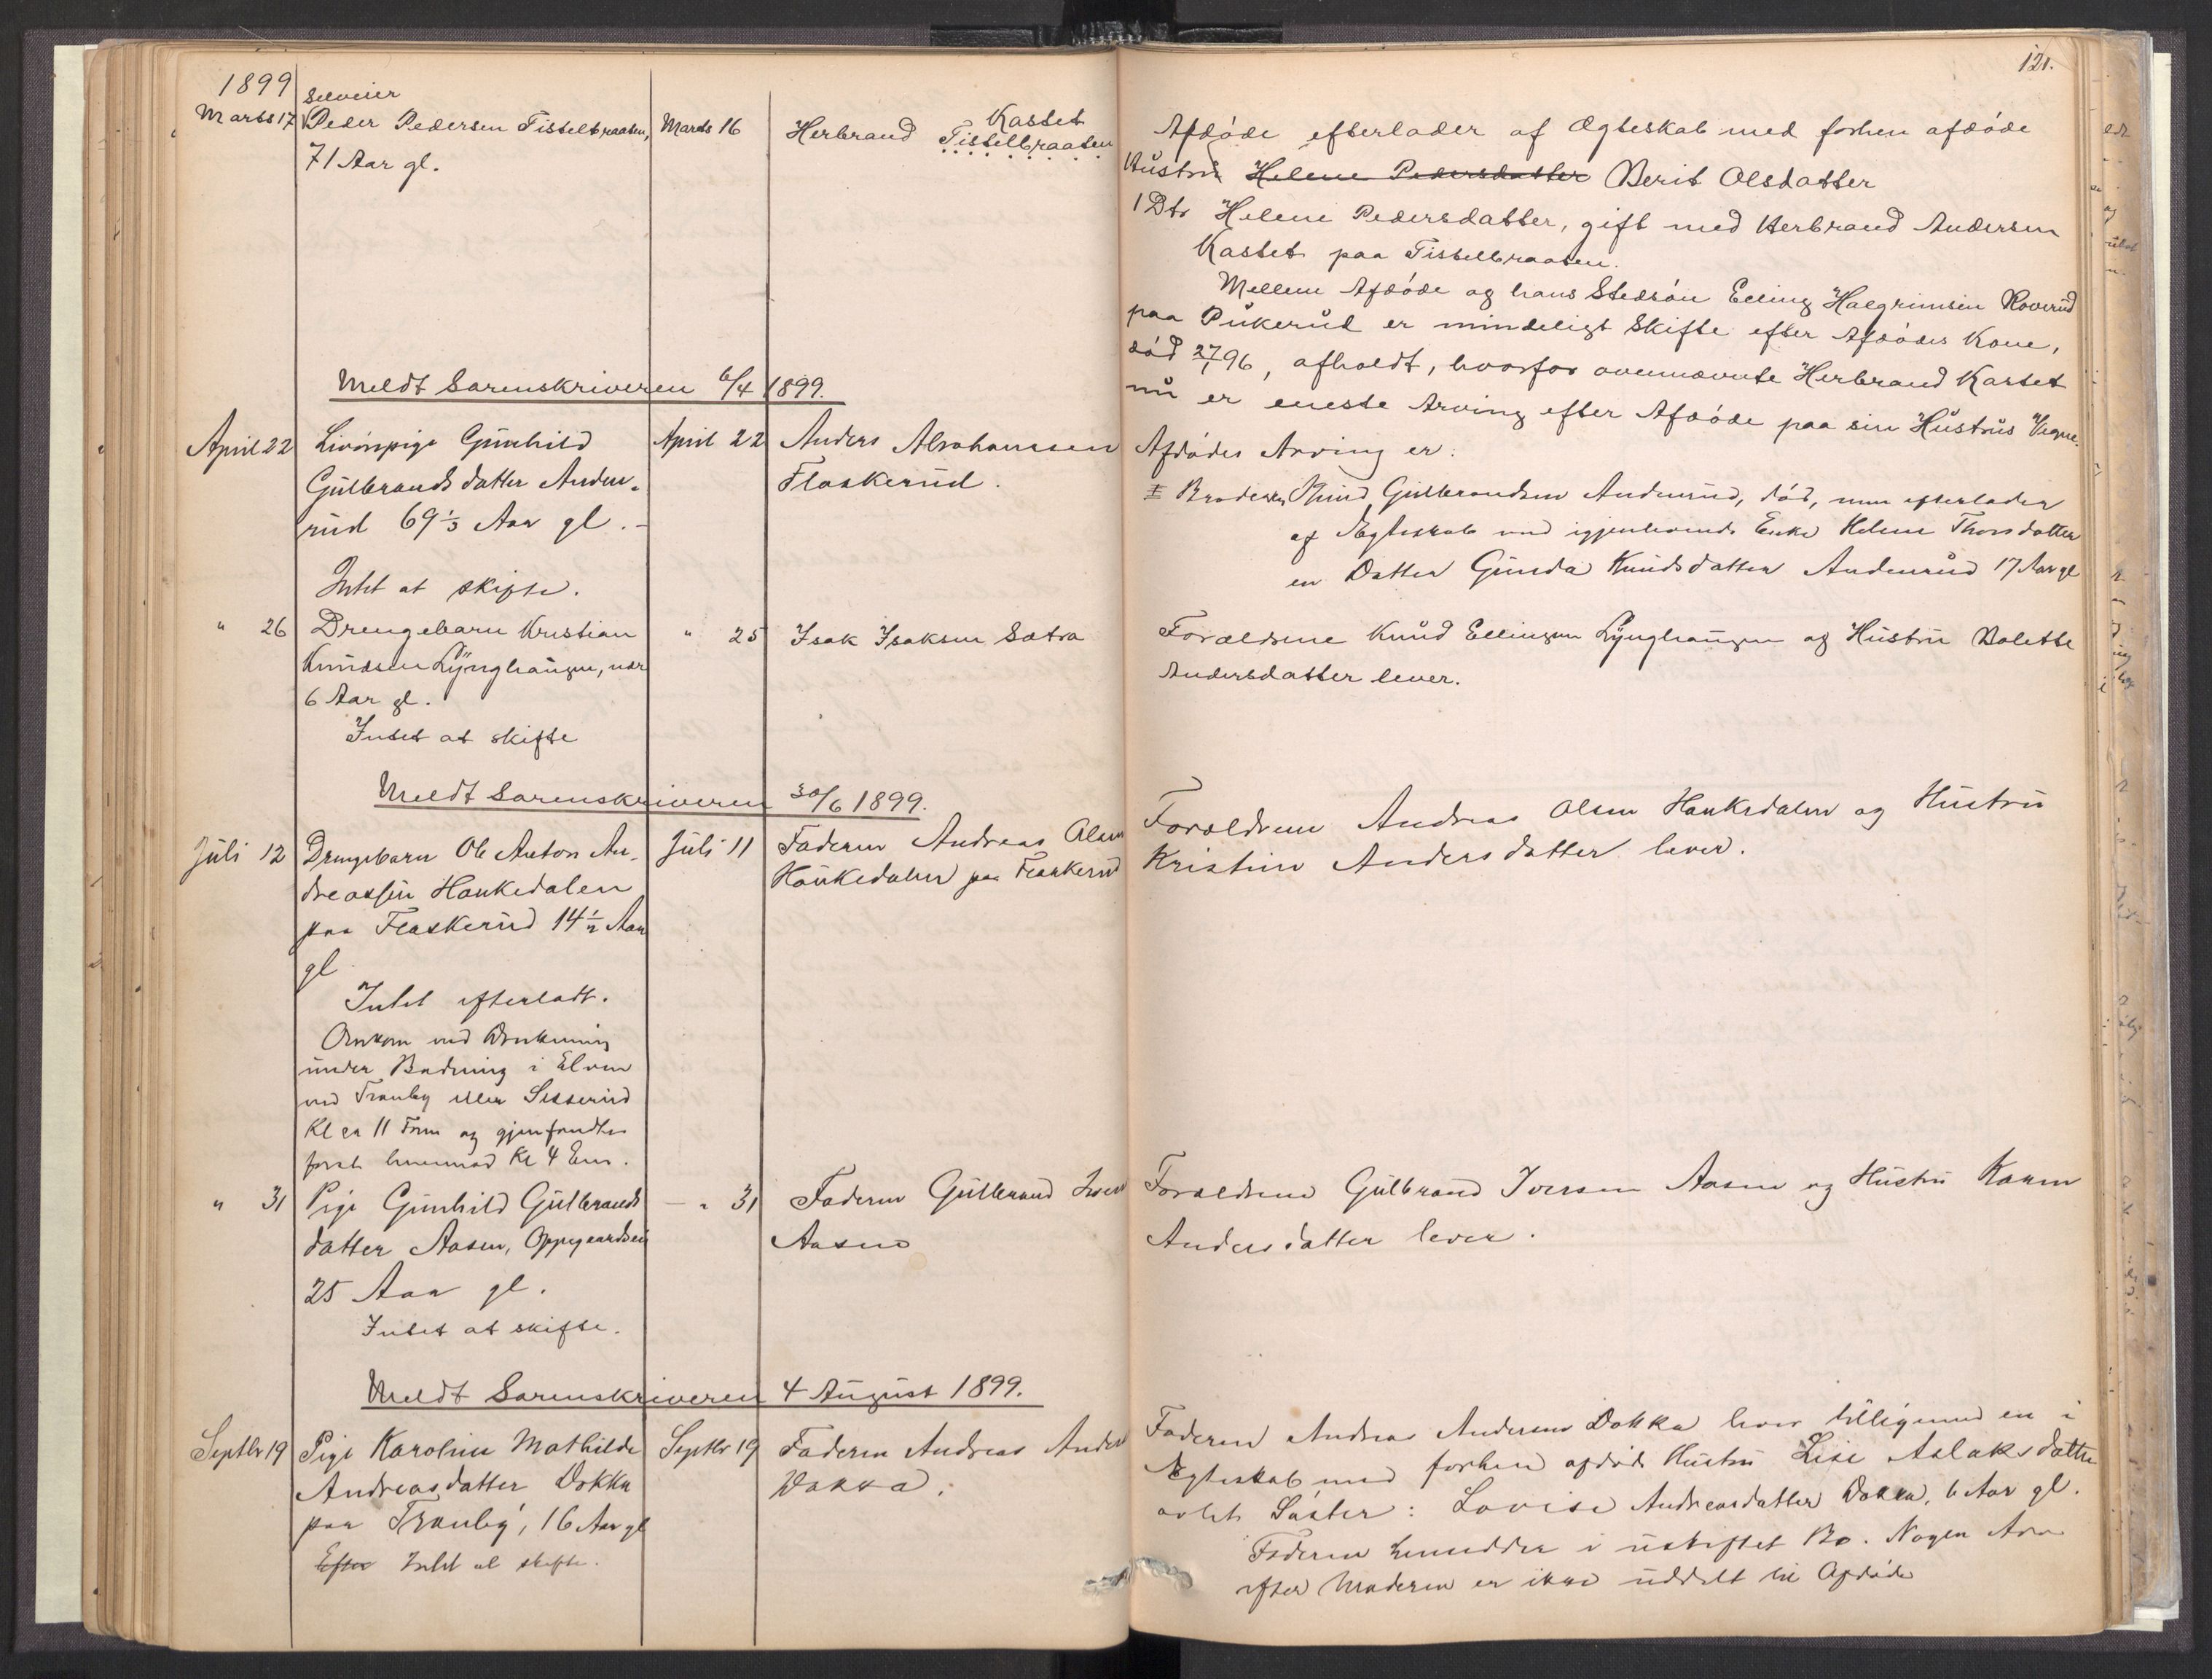 1899
121.
Marts 17
Selveier
Peder Pedersen Tistelbraaten,
71 Aar gl.
Marts 16
Herbrand Kastet
Tistelbraaten
Afdøde efterlader af Ægteskab med forhen afdøde
Hustru Helene Pedersdatter Berit Olsdatter
1 Dtr Helene Pedersdatter, gift med Herbrand Andersen
Kastet paa Tistelbraaten.
Mellem Afdøde og hans Stedsøn Elling Halgrimsen Roverud
paa Pukerud er mindeligt Skifte efter Afdødes Kone,
død 27/96, afholdt, hvorfor ovennævnte Herbrand Kastet
nu er eneste Arving efter Afdøde paa sin Hustrus Vegne.
Meldt Sorenskriveren 6/4 1899.
April 22
Livønpige Gunhild
Gulbrandsdatter Anden-
rud 69 1/3 Aar gl.
Intet at skifte.
April 22
Anders Abrahamsen
Flaskerud.
Afdødes Arving er:
I Broderen Knud Gulbrandsen Andenrud, død, men efterlader
af Ægteskab med igjenlevende Enke Helene Thorsdatter
en Datter Gunda Knudsdatter Andenrud 17 Aar gl
" 26
Drengebarn Kristian
Knudsen Lynghaugen, nær
6 Aar gl.
Intet at skifte
" 25
Isak Isaksen Sætra
Forældrene Knud Ellingsen Lynghaugen og Hustru Bolette
Andersdatter lever.
Meldt Sorenskriveren 30/6 1899.
Juli 12
Drengebarn Ole Anton An-
dreassen Haukedalen
paa Flaskerud 14 1/2 Aar
gl
Intet efterladt.
Omkom ved Drukning
under Badning i Elven
ved Tranby eller Sisserud
Kl ca 11 Form og gjenfandtes
først henimod Kl 4 Em.
Juli 11
Faderen Andreas Olsen
Haukedalen paa Flaskerud
Forældrene Andreas Olsen Haukedalen og Hustru
Kristine Andersdatter lever.
" 31
Pige Gunhild Gulbrands
datter Aasen, Oppegaardseie
25 Aar gl.
Intet at skifte.
" 31
Faderen Gulbrand Iversen
Aasen
Forældrene Gulbrand Iversen Aasen og Hustru Karen
Andersdatter lever.
Meldt Sorenskriveren 4 August 1899.
Septbr 19
Pige Karoline Mathilde
Andreasdatter Dokka
paa Tranby, 16 Aar gl
Efter Intet at skifte.
Septbr 19
Faderen Andreas Anders
Dokka.
Faderen Andreas Andersen Dokka lever tilligemed en i
Ægteskab med forhen afdøde Hustru Lise Aslaksdatter
avlet Søster: Lovise Andreasdatter Dokka, 6 Aar gl.
Faderen hensidder i uskiftet Bo. Nogen Arv
efter Moderen er ikke uddelt til Afdøde